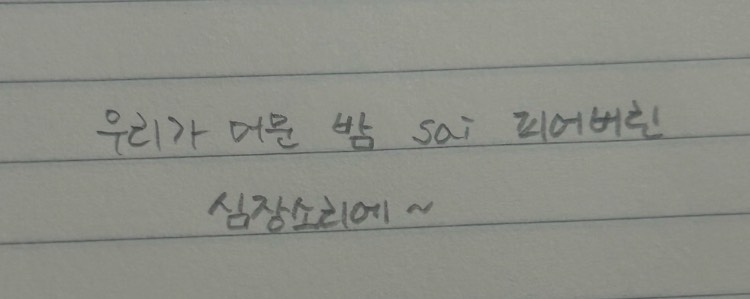 우리가 머문 밤 sai 피어버린
심장소리에~